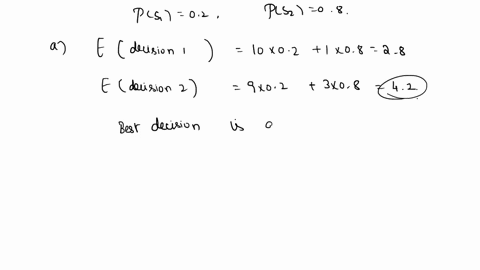 P(S₁) = 0.2 , P(S₂) = 0.8.
a) E (decision 1) = 10 x 0.2 + 1 x 0.8 = 2.8
E (decision 2) = 9 x 0.2 + 3 x 0.8 = 4.2
Best decision is